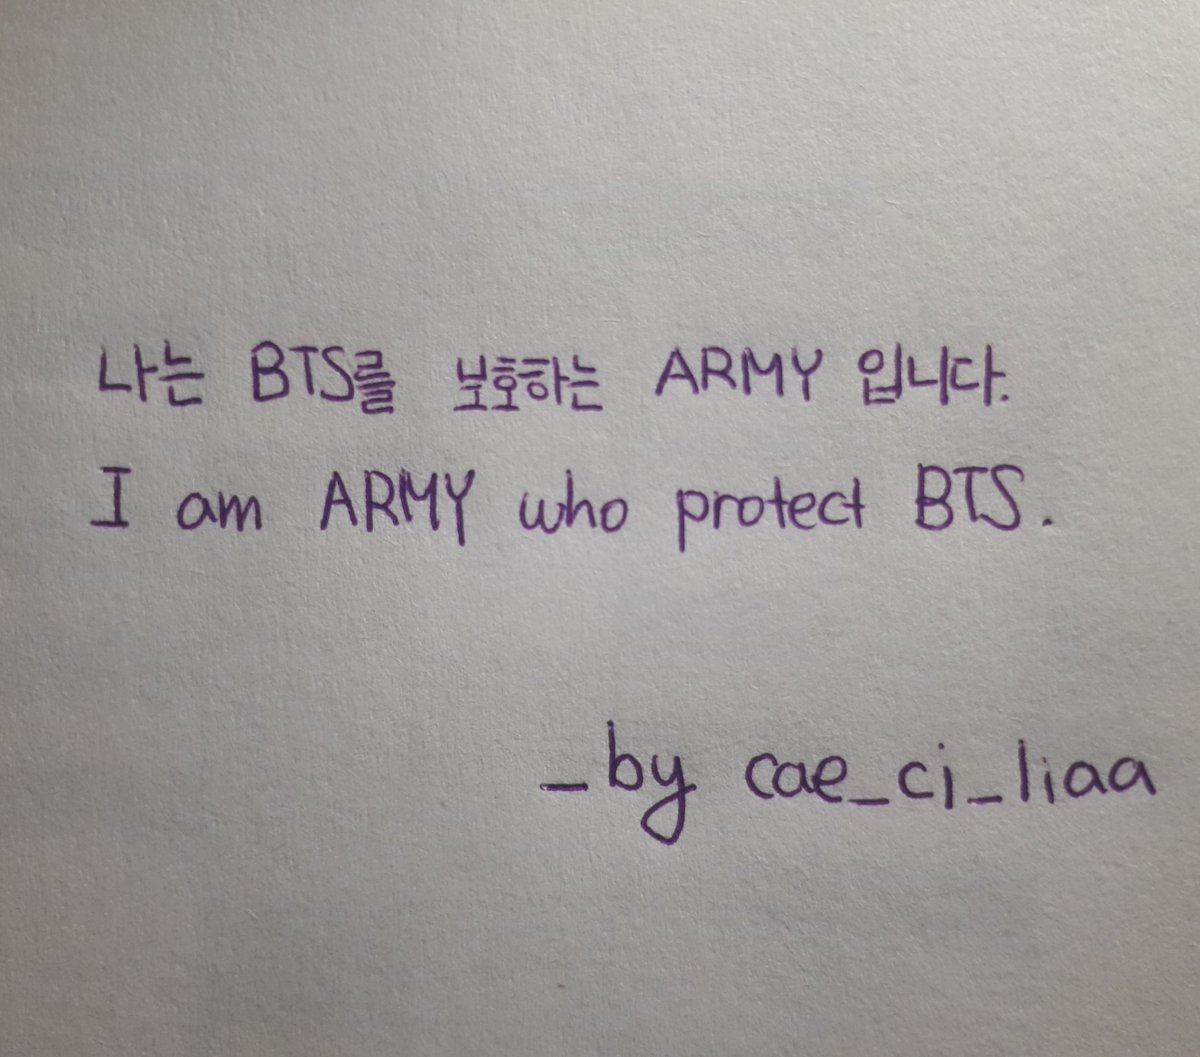 나는 BTS를 보호하는 ARMY 입니다.
I am ARMY who protect BTS.
_by cae_ci_liaa